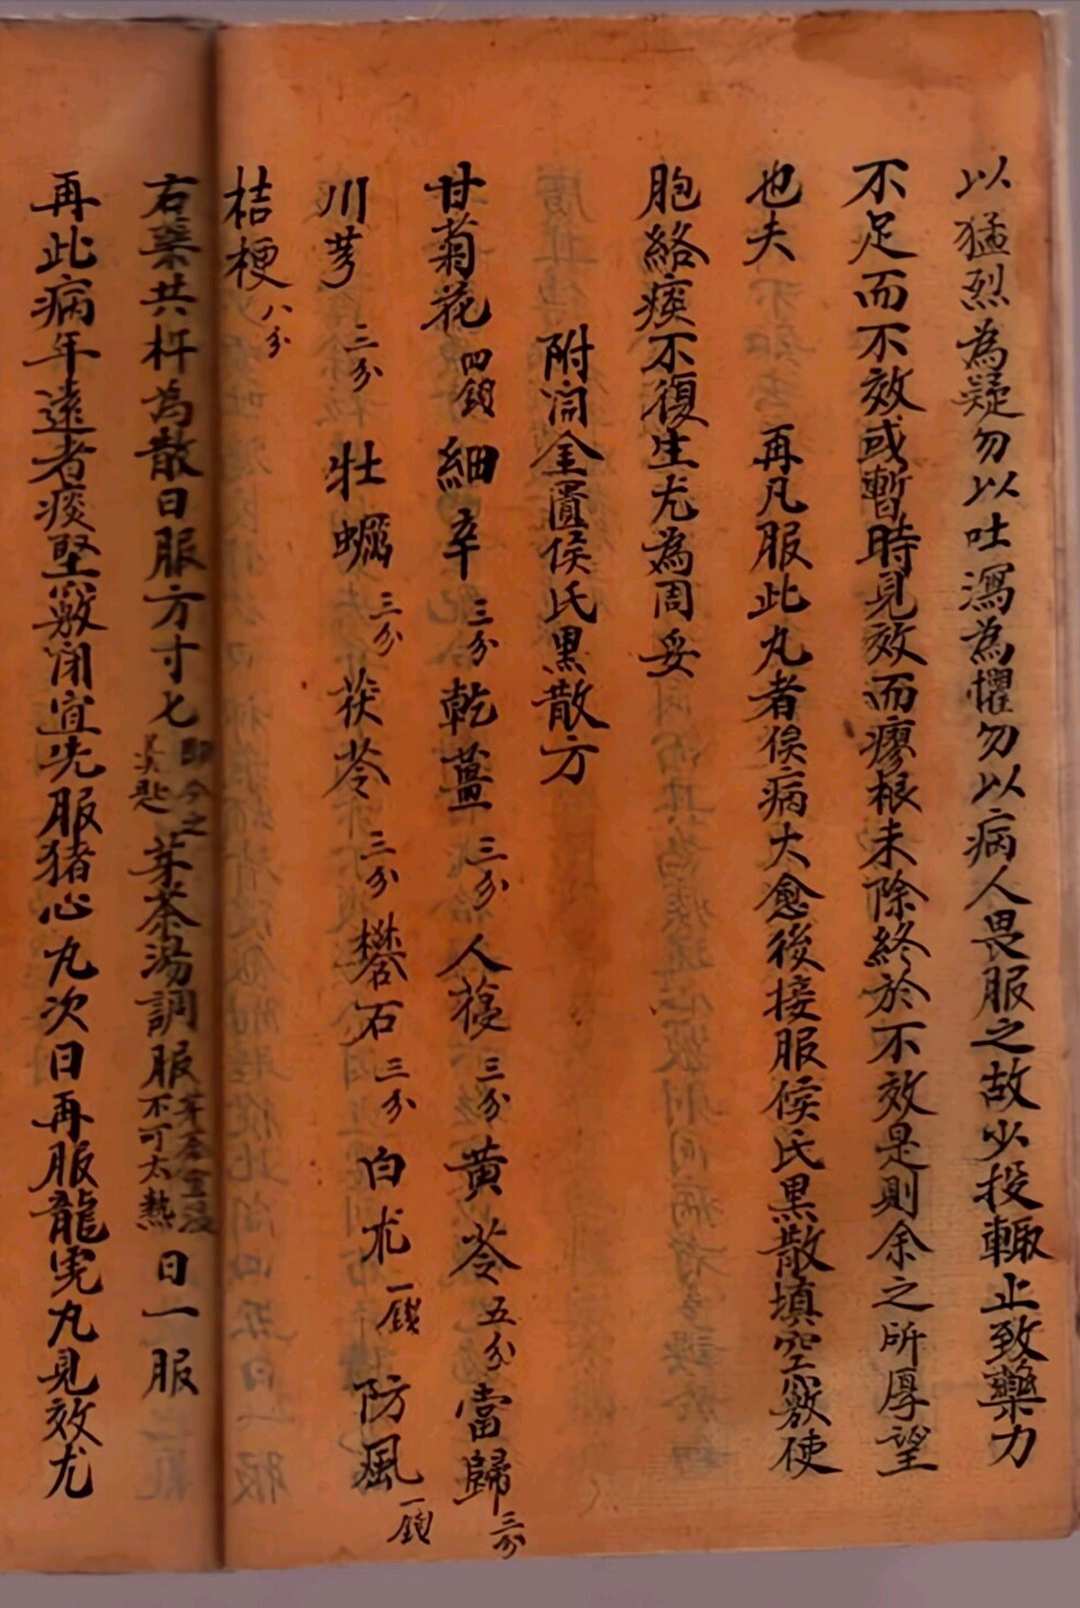 以猛烈為疑勿以吐瀉為懼勿以病人畏服之故少投輙止致藥力
不足而不效或暫時見效而瘳根未除終於不效是則余之所厚望
也夫 再凡服此丸者俟病大愈後接服侯氏黑散填空竅使
胞絡痰不復生尤為周妥
附開金匱侯氏黑散方
甘菊花四錢 細辛三分 乾薑三分 人葠三分 黃芩五分 當歸三分
川芎三分 牡蠣三分 茯苓三分 礬石三分 白朮一錢 防風一錢
桔梗八分
右藥共杵為散日服方寸匕即今之 匙芽茶湯調服芽茶 不可太熱日一服
再此病年遠者痰堅竅閉宜先服猪心丸次日再服龍虎丸見效尤